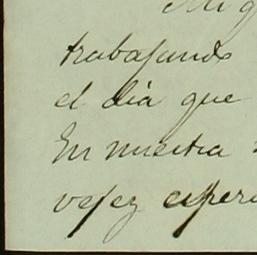 Mi q
trabajando
el dia que
En nuestra
vejez esper